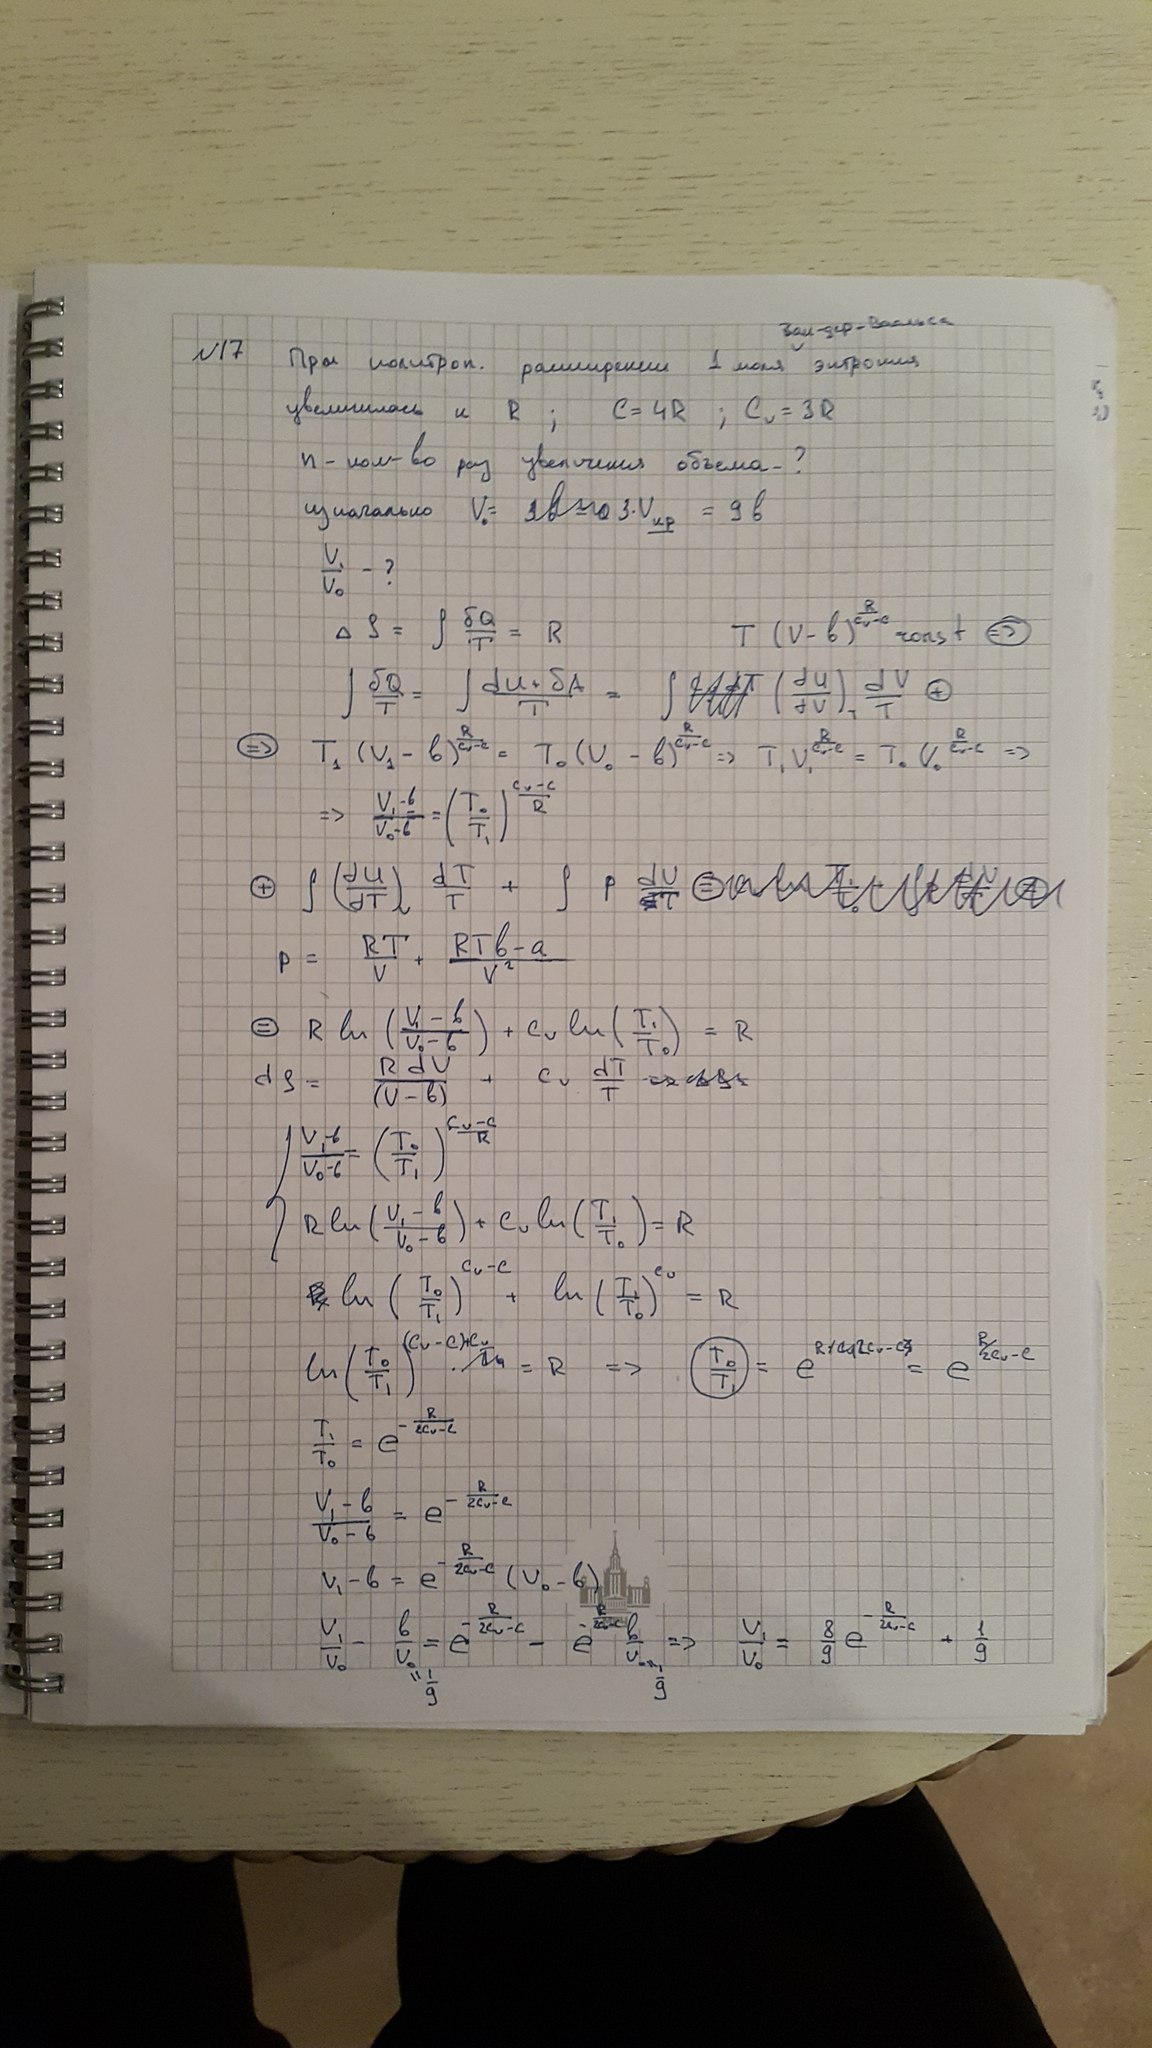 Ван-дер-Ваальса
№17 При политроп. расширении 1 моля энтропия
увеличилась на R ; C = 4R ; Cᵥ = 3R
n - кол-во раз увеличения объема - ?
изначально V₀ = 3·Vкр = 9в
V₁/V₀ - ?
Δ S = ∫ δQ/T = R T (V - в)^(R/(Cᵥ-C)) const ⇒
∫ δQ/T = ∫ (dU + δA)/T = ∫ (dU/dV)_T dV/T ⊕
⇒ T₁ (V₁ - в)^(R/(Cᵥ-C)) = T₀ (V₀ - в)^(R/(Cᵥ-C)) => T₁V₁^(R/(Cᵥ-C)) = T₀ V₀^(R/(Cᵥ-C)) =>
=> (V₁-в)/(V₀-в) = (T₀/T₁)^((Cᵥ-C)/R)
⊕ ∫ (dU/dT)ᵥ dT/T + ∫ p dV/T ⊜
p = RT/V + (RTв - a)/V²
⊜ R ln ((V₁ - в)/(V₀ - в)) + Cᵥ ln (T₁/T₀) = R
dS = R dV/(V - в) + Cᵥ dT/T
(V₁-в)/(V₀-в) = (T₀/T₁)^((Cᵥ-C)/R)
R ln ((V₁ - в)/(V₀ - в)) + Cᵥ ln (T₁/T₀) = R
ln (T₀/T₁)^(Cᵥ-C) + ln (T₁/T₀)^(Cᵥ) = R
ln (T₀/T₁)^((Cᵥ-C)+Cᵥ) = R => T₀/T₁ = = e^(R/(2Cᵥ-C))
T₁/T₀ = e^(-R/(2Cᵥ-C))
(V₁ - в)/(V₀ - в) = e^(-R/(2Cᵥ-C))
V₁ - в = e^(-R/(2Cᵥ-C)) (V₀ - в)
V₁/V₀ - в/V₀ = e^(-R/(2Cᵥ-C)) - e^(-R/(2Cᵥ-C)) в/V₀ => V₁/V₀ = 8/9 e^(-R/(2Cᵥ-C)) + 1/9
= 1/9 = 1/9